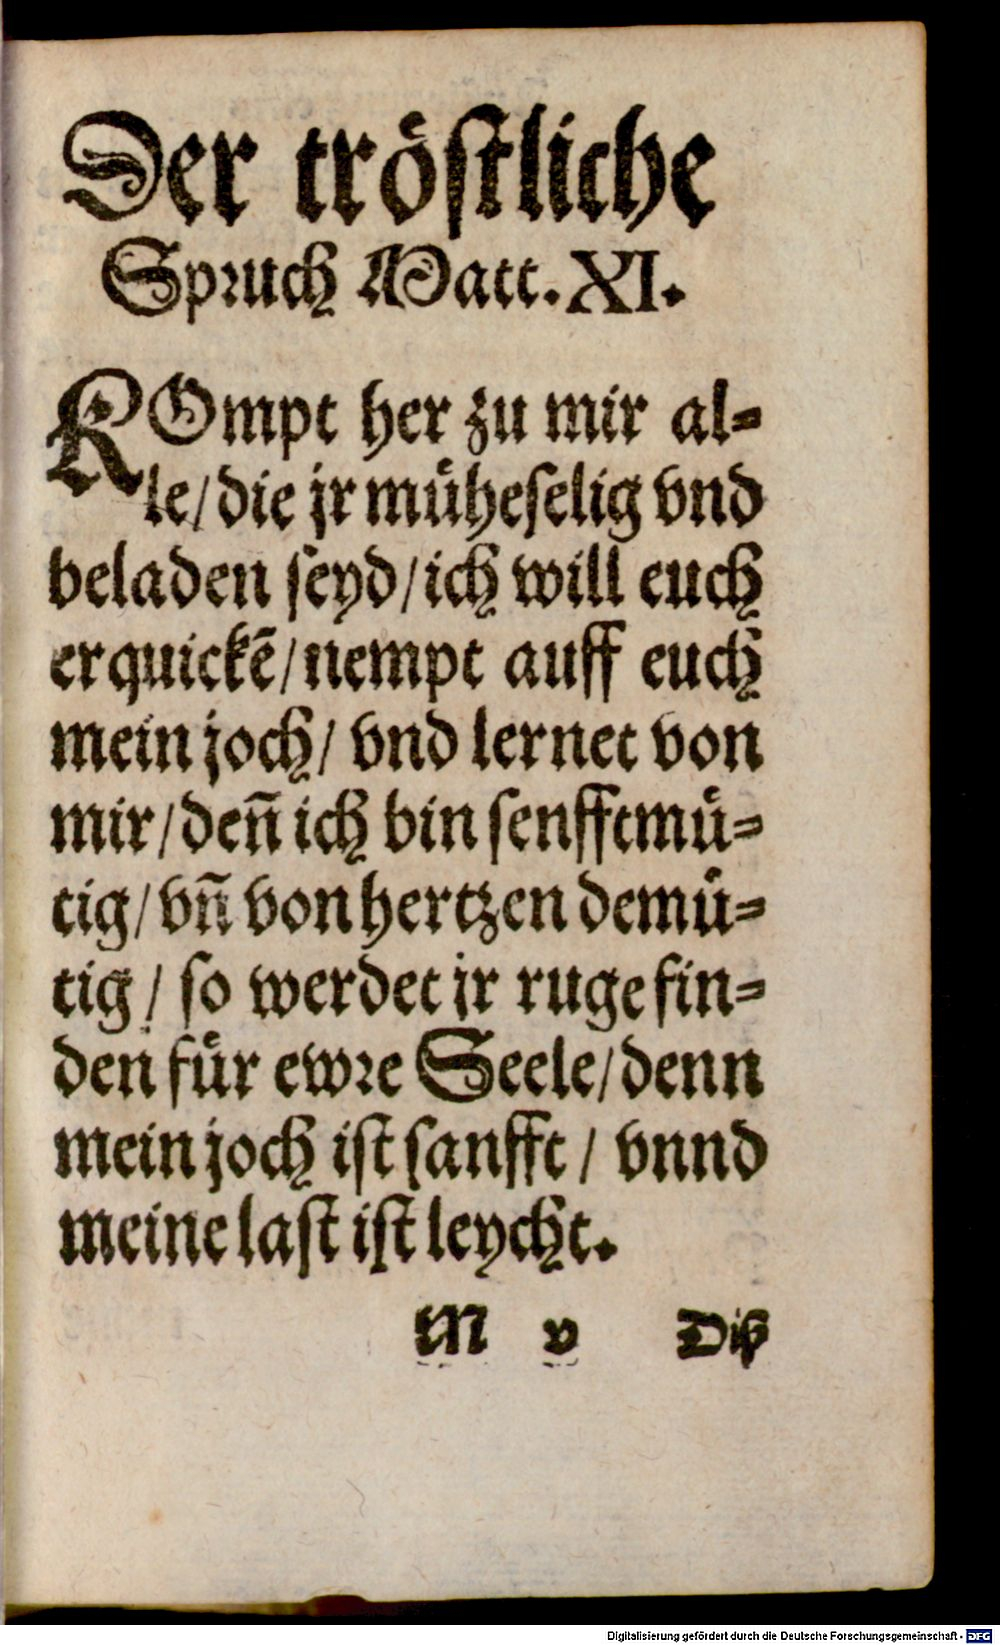 Der tröſtliche
Spꝛuch Matt. XI.
KOmpt her zu mir al⸗
le/ die jr muͤheſelig vnd
beladen ſeyd/ ich will euch
erquickẽ/ nempt auff euch
mein joch/ vnd lernet von
mir/ deñ ich bin ſenfftmuͤ⸗
tig/ vñ von hertzen demuͤ⸗
tig/ ſo werdet jr ruge fin⸗
den fuͤr ewꝛe Seele/ denn
mein joch iſt ſanfft/ vnnd
meine laſt iſt leycht.
M v Diß
Digitalisierung gefördert durch die Deutsche Forschungsgemeinschaft - DFG